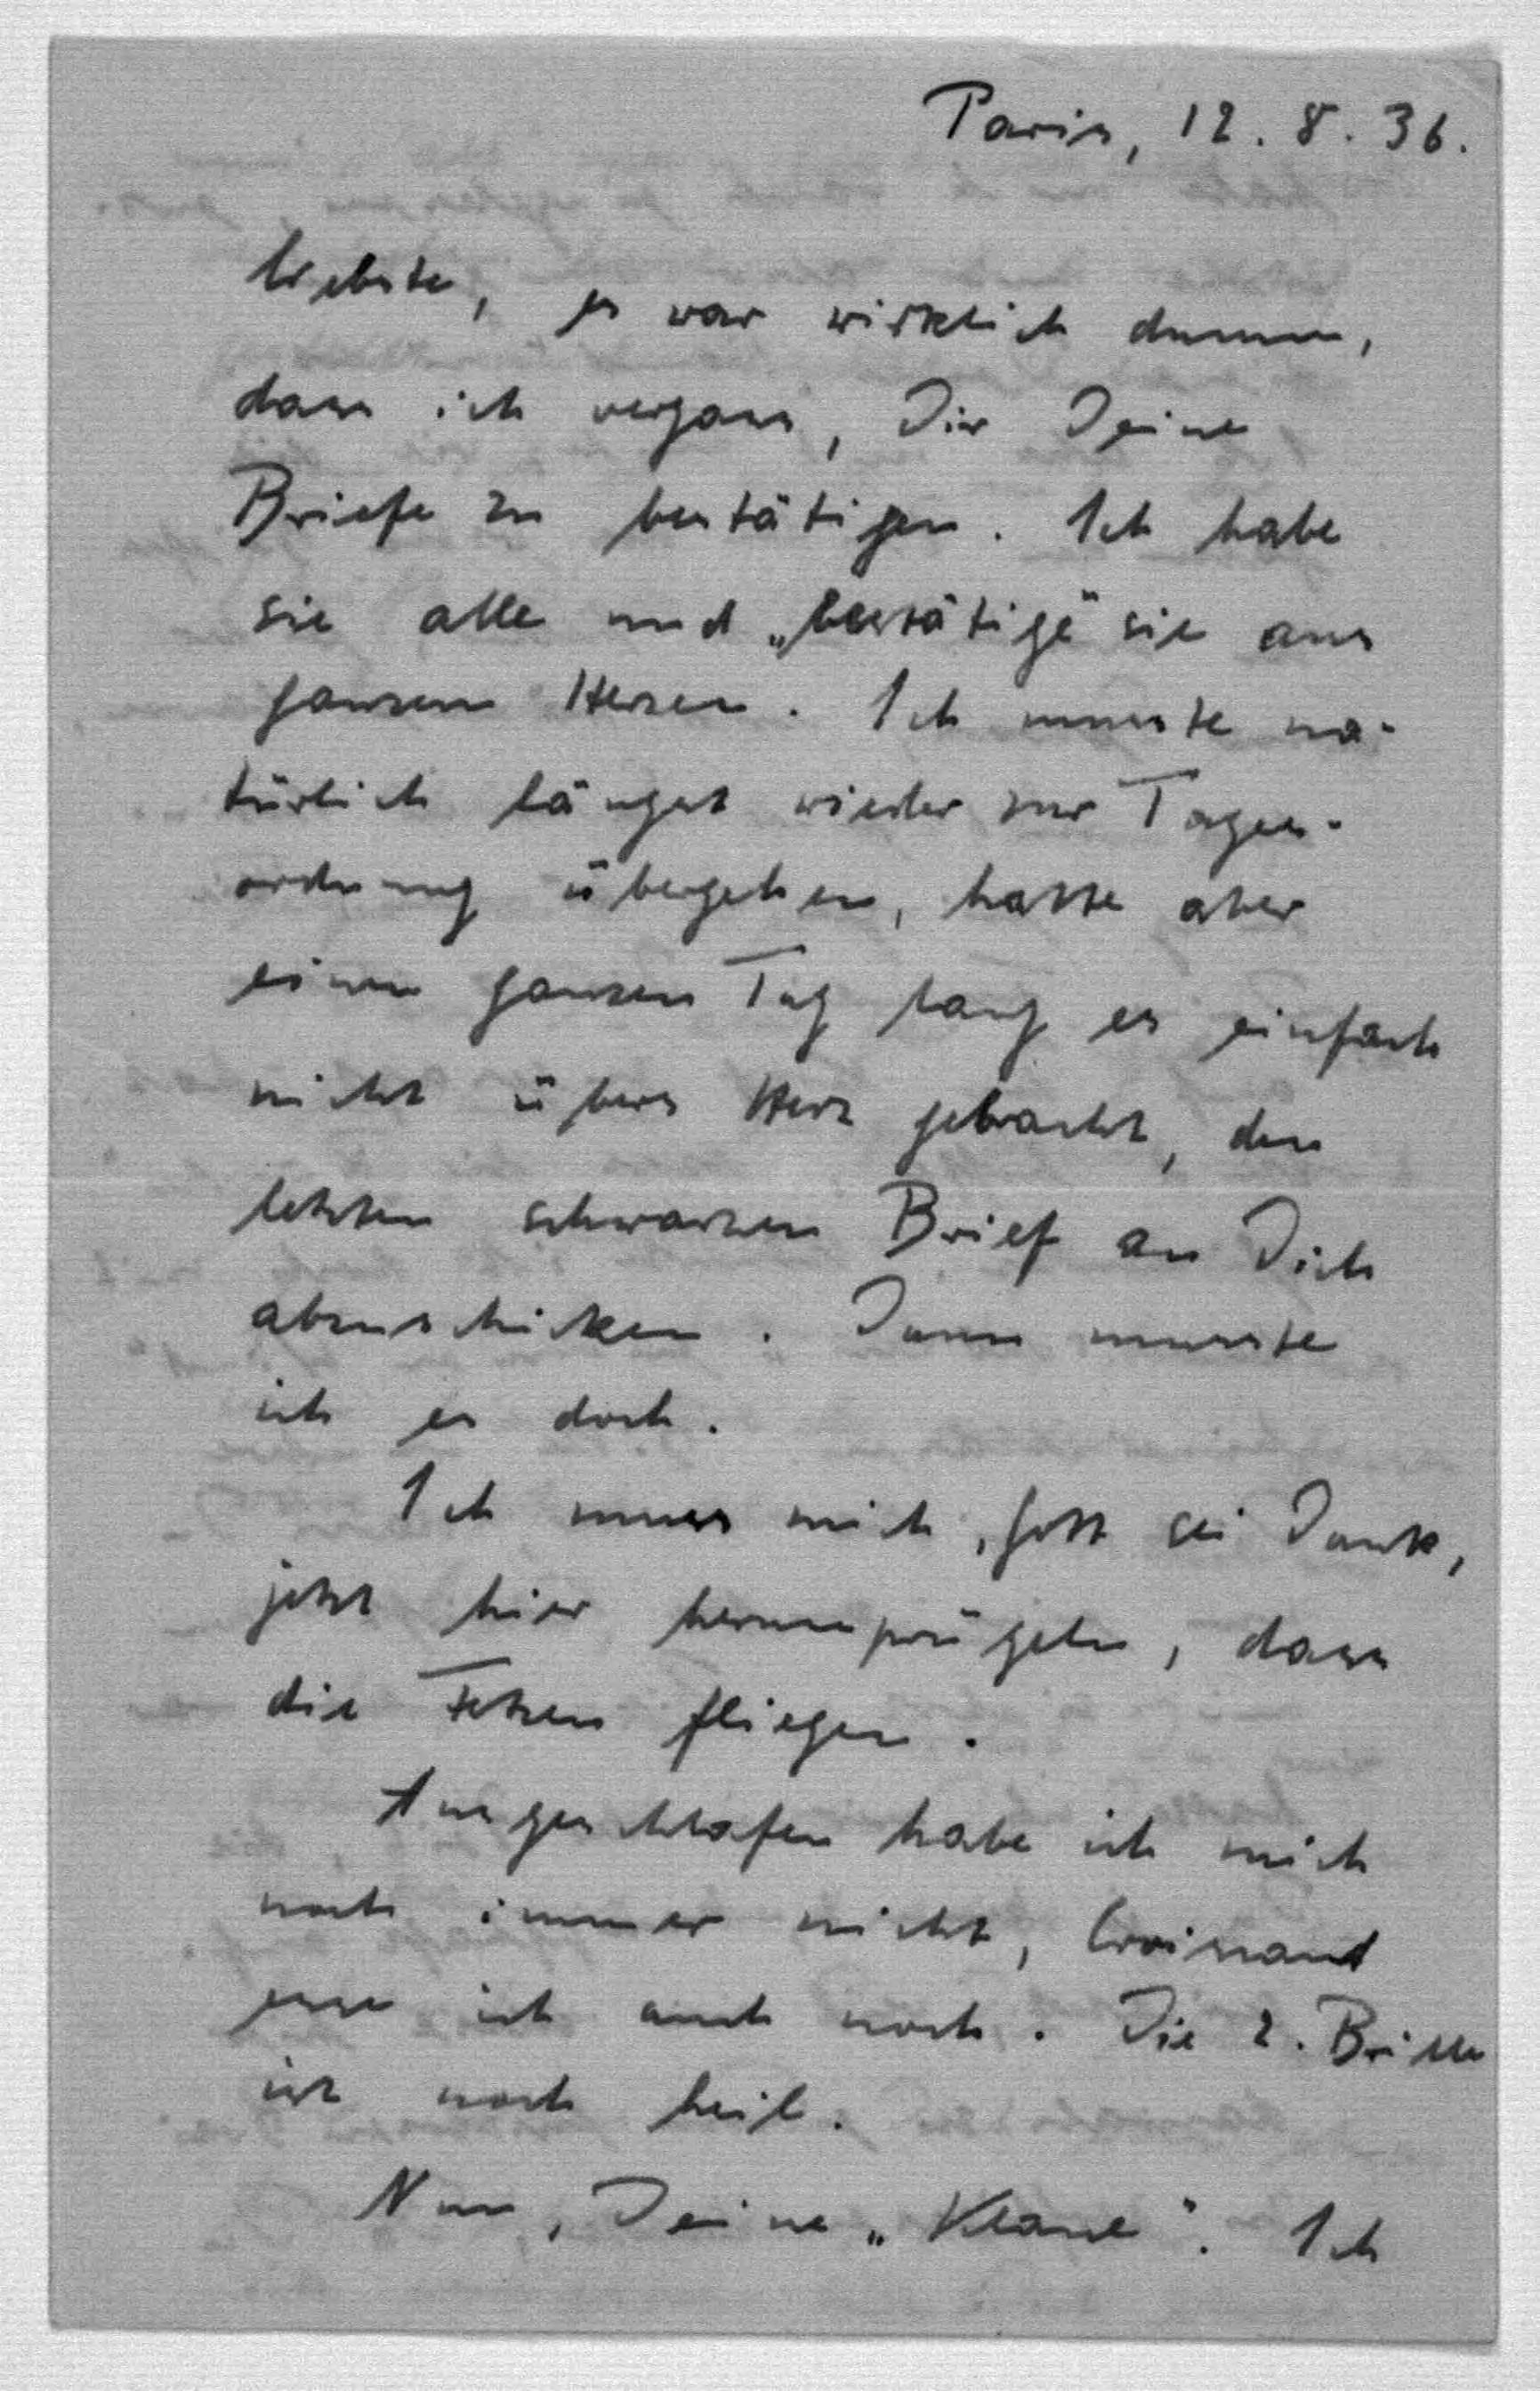 Paris, 12. 8. 36.
Liebste, es war wirklich dumm,
dass ich vergass, Dir Deine
Briefe zu bestätigen. Ich habe
sie alle und „bestätige" sie aus
ganzem Herzen. Ich musste na-
türlich längst wieder zur Tages-
ordnung übergehen, hatte aber
einen ganzen Tag lang es einfach
nicht übers Herz gebracht, den
letzten schwarzen Brief an Dich
abzuschicken. Dann musste
ich es doch.
Ich muss mich, Gott sei Dank,
jetzt hier herumprügeln, dass
die Fetzen fliegen.
Ausgeschlafen habe ich mich
noch immer nicht, Croissant
esse ich auch noch. Die 2. Brille
ist noch heil.
Nun, Deine „Klause". Ich